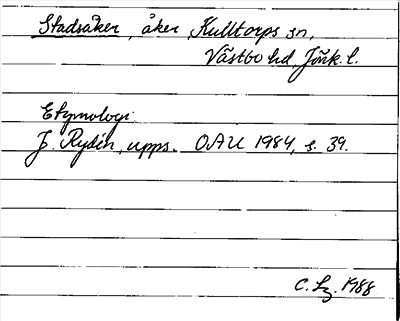 Stadsåker, åker, Kulltorps sn,
Västbo hd, Jönk. l.
Etymologi
J. Rydén, upps. OAU 1984, s. 39.
C. Lz. 1988